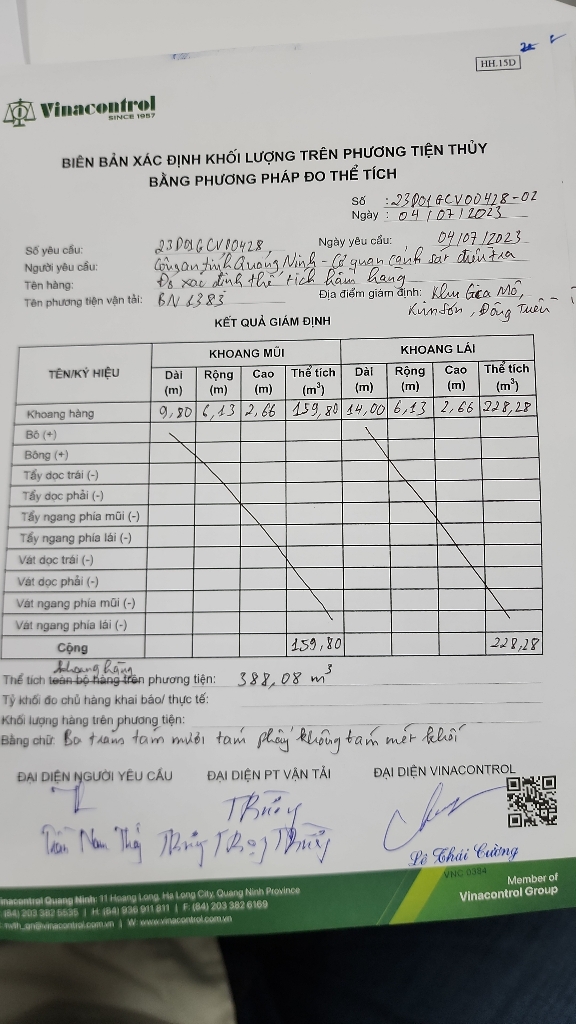 HH.15D
Vinacontrol
SINCE 1957
BIÊN BẢN XÁC ĐỊNH KHỐI LƯỢNG TRÊN PHƯƠNG TIỆN THỦY
BẰNG PHƯƠNG PHÁP ĐO THỂ TÍCH
Số : 23P01GCV00428-02
Ngày : 04/07/2023
Số yêu cầu: 23P01GCV00428 Ngày yêu cầu: 04/07/2023
Người yêu cầu: Công an tỉnh Quảng Ninh - Cơ quan cảnh sát điều tra
Tên hàng: Đo xác định thể tích hầm hàng
Tên phương tiện vận tải: BN 1383 Địa điểm giám định: Khu Gia Mô,
Kim Sơn, Đông Triều
KẾT QUẢ GIÁM ĐỊNH
TÊN/KÝ HIỆU KHOANG MŨI KHOANG LÁI
Dài (m) Rộng (m) Cao (m) Thể tích (m³) Dài (m) Rộng (m) Cao (m) Thể tích (m³)
Khoang hàng 9,80 6,13 2,66 159,80 14,00 6,13 2,66 228,28
Bô (+)
Bông (+)
Tẩy dọc trái (-)
Tẩy dọc phải (-)
Tẩy ngang phía mũi (-)
Tẩy ngang phía lái (-)
Vát dọc trái (-)
Vát dọc phải (-)
Vát ngang phía mũi (-)
Vát ngang phía lái (-)
Cộng 159,80 228,28
khoang hàng
Thể tích toàn bộ hàng trên phương tiện: 388,08 m³
Tỷ khối do chủ hàng khai báo/ thực tế:
Khối lượng hàng trên phương tiện:
Bằng chữ: Ba trăm tám mươi tám phẩy không tám mét khối
ĐẠI DIỆN NGƯỜI YÊU CẦU ĐẠI DIỆN PT VẬN TẢI ĐẠI DIỆN VINACONTROL
Trần Nam Thy
Lê Thái Cường
VNC 0384
Vinacontrol Quang Ninh: 11 Hoang Long, Ha Long City, Quang Ninh Province
(84) 203 382 5535 | H: (84) 936 911 811 | F: (84) 203 382 6169
W: www.vinacontrol.com.vn
Member of
Vinacontrol Group